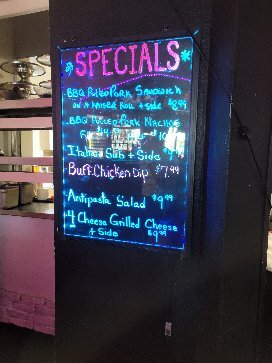 SPECIALS
BBQ Pulled Pork Sandwich
on a Kaiser Roll + side $8.99
BBQ Pulled Pork Nachos
Italian Sub + Side
Buff. Chicken Dip $7.99
Antipasta Salad $9.99
4 Cheese Grilled Cheese
+ Side $9.99